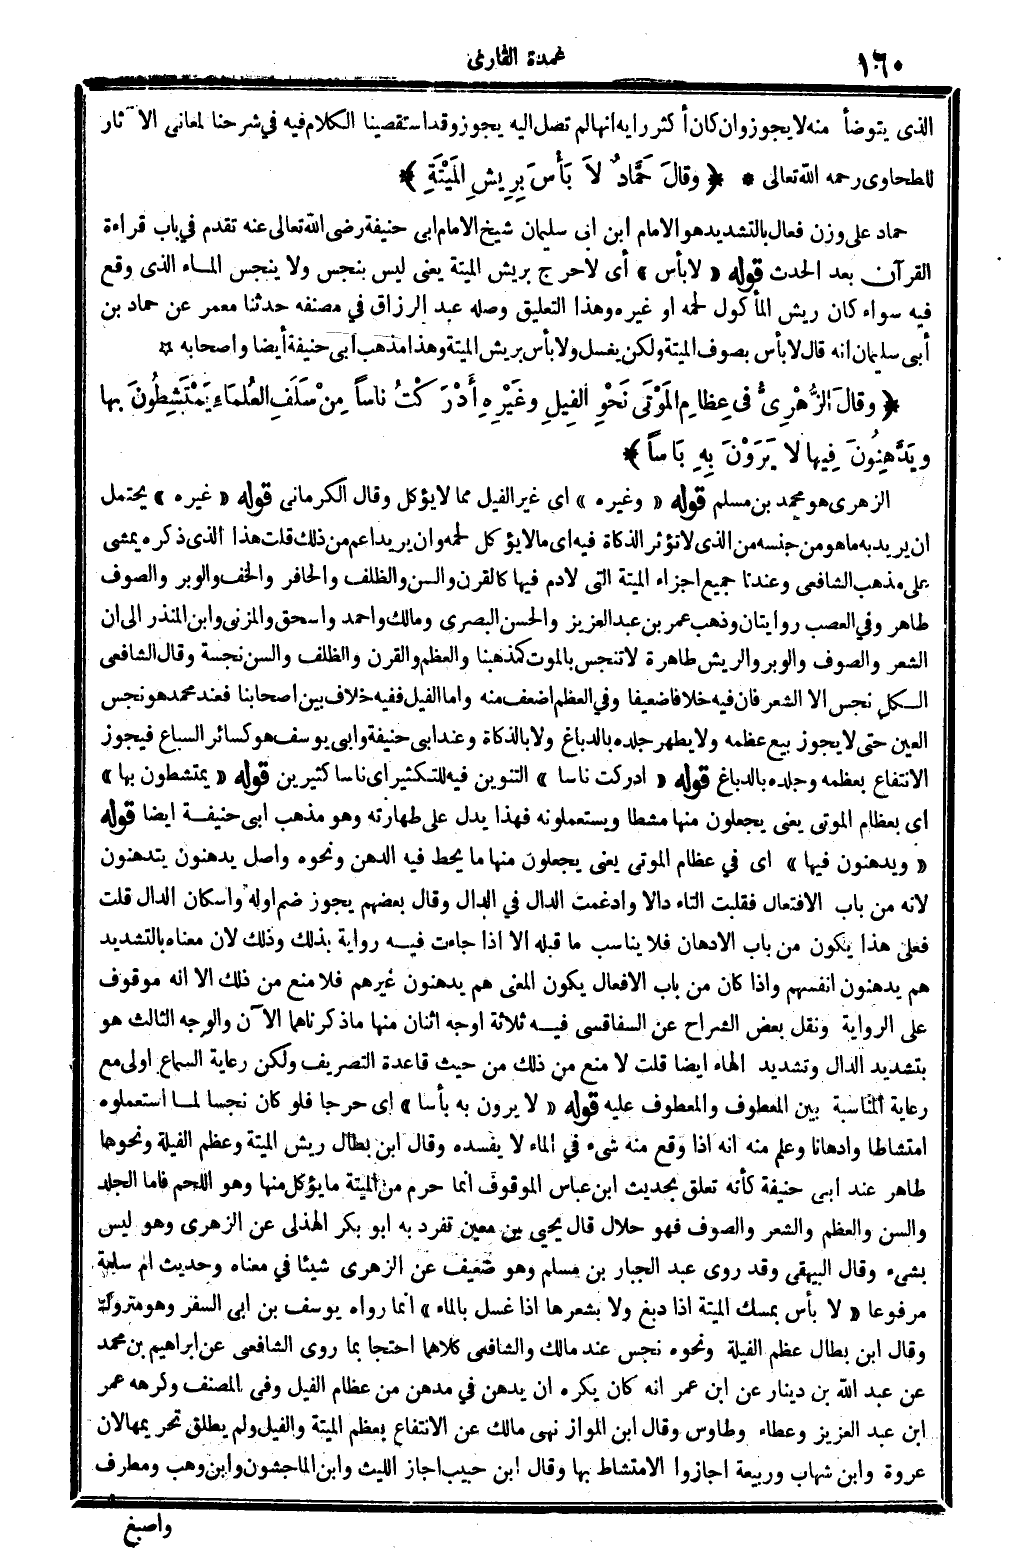 ١٦٠
عمدة القارئ
الذى يتوضأ منه لا يجوز وان كان أكثر رايه انها لم تصل اليه يجوز وقد استقصينا الكلام فيه في شرحنا لمعانى الآثار
للطحاوى رحمه الله تعالى * ﴿ وقالَ حَمَّادٌ لاَ بَأْسَ بِرِيشِ المَيْتَةِ ﴾
حماد على وزن فعال بالتشديد هو الامام ابن ابى سليمان شيخ الامام ابى حنيفة رضى الله تعالى عنه تقدم في باب قراءة
القرآن بعد الحدث قوله « لا بأس » أى لا حرج بريش الميتة يعنى ليس بنجس ولا ينجس الماء الذى وقع
فيه سواء كان ريش المأكول لحمه او غيره وهذا التعليق وصله عبد الرزاق في مصنفه حدثنا معمر عن حماد بن
أبى سليمان انه قال لا بأس بصوف الميتة ولكن يغسل ولا بأس بريش الميتة وهذا مذهب ابى حنيفة أيضا واصحابه ☆
﴿ وقالَ الزُّهْرِىُّ فى عِظامِ المَوْتَى نَحْوِ الفِيلِ وغَيْرِهِ أَدْرَكْتُ ناساً مِنْ سَلَفِ العُلَمَاءِ يَمْتَشِطُونَ بها
ويَدَّهِنُونَ فِيها لا يَرَوْنَ بِهِ بَاساً ﴾
الزهرى هو محمد بن مسلم قوله « وغيره » اى غير الفيل مما لا يؤكل وقال الكرمانى قوله « غيره » يحتمل
ان يريد به ما هو من جنسه من الذى لا تؤثر الذكاة فيه اى مالا يؤكل لحمه وان يريد اعم من ذلك قلت هذا الذى ذكره يمشى
على مذهب الشافعى وعندنا جميع اجزاء الميتة التى لا دم فيها كالقرن والسن والظلف والحافر والخف والوبر والصوف
طاهر وفي العصب روايتان وذهب عمر بن عبد العزيز والحسن البصرى ومالك واحمد واسحق والمزنى وابن المنذر الى ان
الشعر والصوف والوبر والريش طاهرة لا تنجس بالموت كمذهبنا والعظم والقرن والظلف والسن نجسة وقال الشافعى
الكل نجس الا الشعر فان فيه خلافا ضعيفا وفي العظم اضعف منه واما الفيل ففيه خلاف بين اصحابنا فعند محمد هو نجس
العين حتى لا يجوز بيع عظمه ولا يطهر جلده بالدباغ ولا بالذكاة وعند ابى حنيفة وابى يوسف هو كسائر السباع فيجوز
الانتفاع بعظمه وجلده بالدباغ قوله « ادركت ناسا » التنوين فيه للتكثير اى ناسا كثيرين قوله « يمتشطون بها »
اى بعظام الموتى يعنى يجعلون منها مشطا ويستعملونه فهذا يدل على طهارته وهو مذهب ابى حنيفة ايضا قوله
« ويدهنون فيها » اى في عظام الموتى يعنى يجعلون منها ما يحط فيه الدهن ونحوه واصل يدهنون يتدهنون
لانه من باب الافتعال فقلبت التاء دالا وادغمت الدال في الدال وقال بعضهم يجوز ضم اوله واسكان الدال قلت
فعلى هذا يكون من باب الادهان فلا يناسب ما قبله الا اذا جاءت فيه رواية بذلك وذلك لان معناه بالتشديد
هم يدهنون انفسهم واذا كان من باب الافعال يكون المعنى هم يدهنون غيرهم فلا منع من ذلك الا انه موقوف
على الرواية ونقل بعض الشراح عن السفاقسى فيه ثلاثة اوجه اثنان منها ما ذكرناهما الآن والوجه الثالث هو
بتشديد الدال وتشديد الهاء ايضا قلت لا منع من ذلك من حيث قاعدة التصريف ولكن رعاية السماع اولى مع
رعاية المناسبة بين المعطوف والمعطوف عليه قوله « لا يرون به بأسا » اى حرجا فلو كان نجسا لما استعملوه
امتشاطا وادهانا وعلم منه انه اذا وقع منه شىء في الماء لا يفسده وقال ابن بطال ريش الميتة وعظم الفيلة ونحوها
طاهر عند ابى حنيفة كأنه تعلق بحديث ابن عباس الموقوف انما حرم من الميتة ما يؤكل منها وهو اللحم فاما الجلد
والسن والعظم والشعر والصوف فهو حلال قال يحيى بن معين تفرد به ابو بكر الهذلى عن الزهرى وهو ليس
بشىء وقال البيهقى وقد روى عبد الجبار بن مسلم وهو ضعيف عن الزهرى شيئا في معناه وحديث ام سلمة
مرفوعا « لا بأس بمسك الميتة اذا دبغ ولا بشعرها اذا غسل بالماء » انما رواه يوسف بن ابى السفر وهو متروك
وقال ابن بطال عظم الفيلة ونحوه نجس عند مالك والشافعى كلاهما احتجا بما روى الشافعى عن ابراهيم بن محمد
عن عبد الله بن دينار عن ابن عمر انه كان يكره ان يدهن في مدهن من عظام الفيل وفى المصنف وكرهه عمر
ابن عبد العزيز وعطاء وطاوس وقال ابن المواز نهى مالك عن الانتفاع بعظم الميتة والفيل ولم يطلق تحريمها لان
عروة وابن شهاب وربيعة اجازوا الامتشاط بها وقال ابن حبيب اجاز الليث وابن الماجشون وابن وهب ومطرف
واصبغ